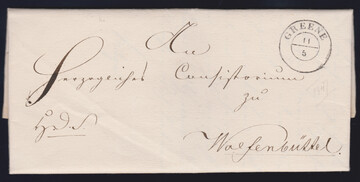 An
Herzogliches Consistorium
zu
Wolfenbüttel.
GREENE
11
5